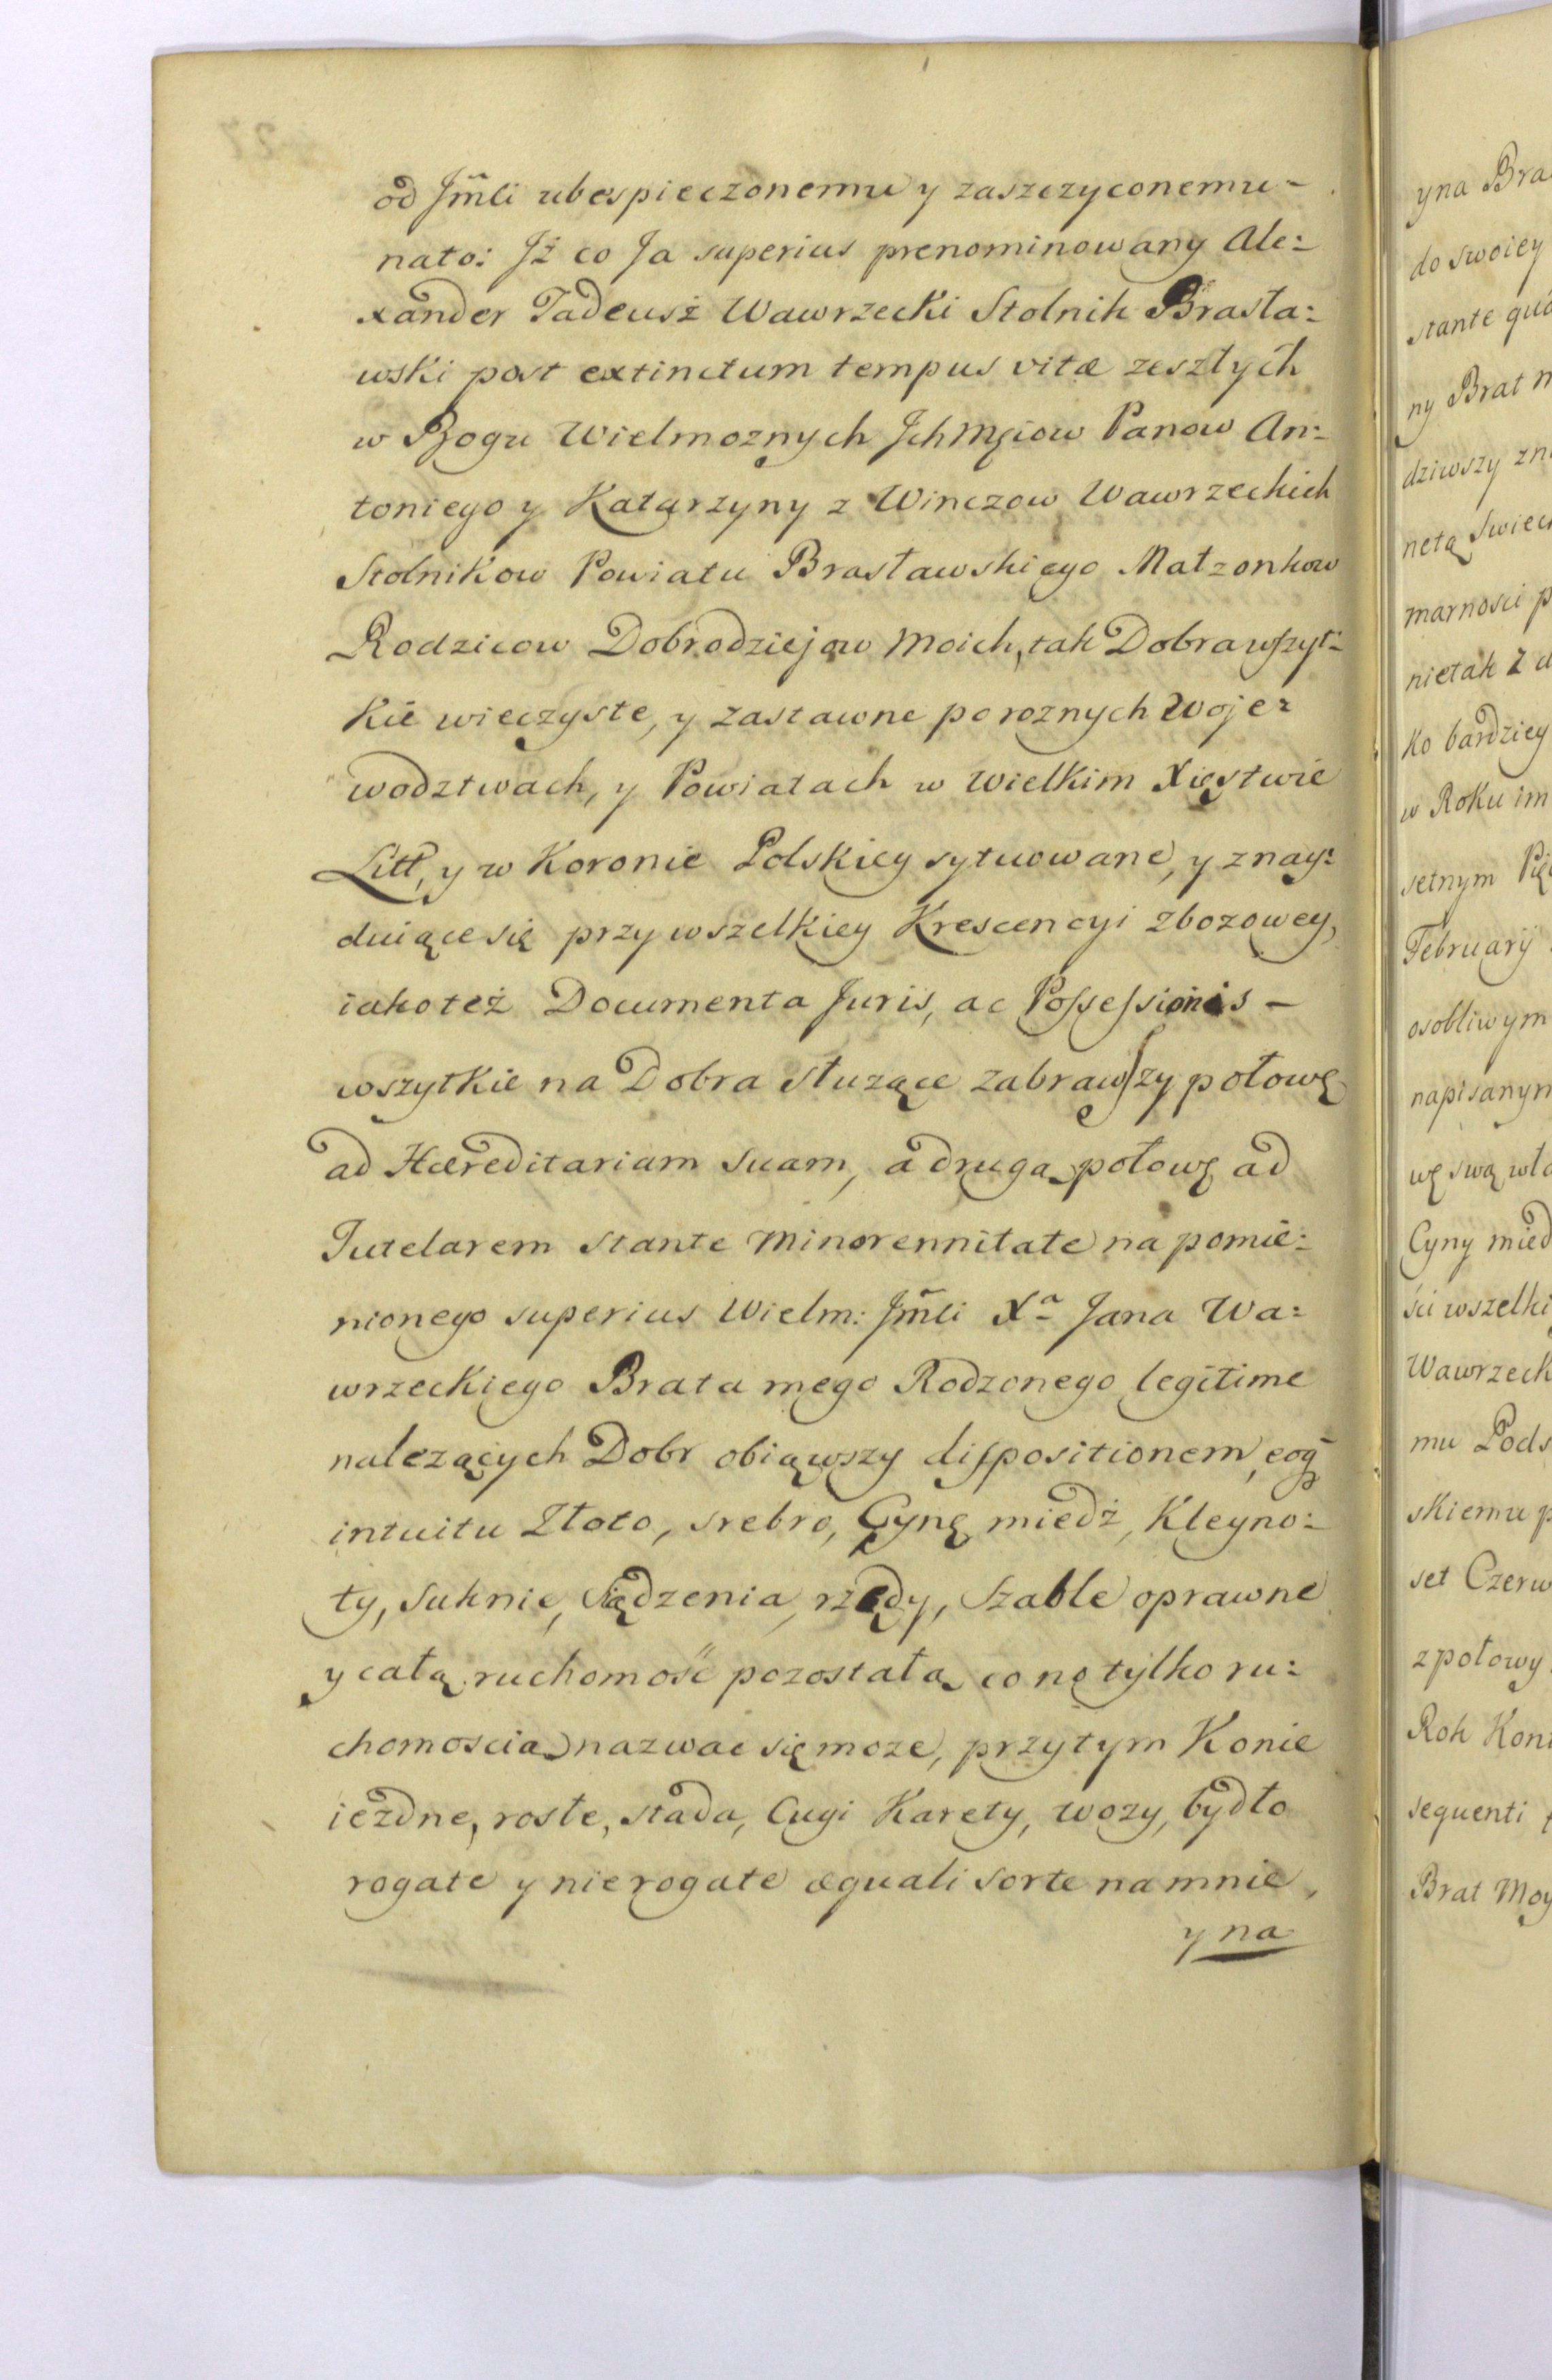 od Jm̃ci ubespieczonemu y zaszczyconemu -
nato: Jż co Ja superius prenominowany Ale:
xander Tadeusż Wawrzecki Stolnik Brasła:
wski post extinctum tempus vitæ zeszłych
w Bogu Wielmoznych Jchmęiow Panow An:
toniego y Katarzyny z Winczow Wawrzeckich
Stolnikow Powiatu Brasławskiego Małzonkow
Rodzicow Dobrodziejow Moich, tak Dobra wszyt:
kie wieczyste, y zastawne po roznych Woje:
wodztwach, y Powiatach w Wielkim Xięstwie
Litt, y w Koronie Polskiey sytuowane, y znay:
duiące się przy wszelkiey Krescencyi zbozowey,
iako też Documenta Juris, ac Possessionis -
wszytkie na Dobra słuzące zabrawszy połowę
ad Hæreditariam suam, a drugą połowę ad
Tutelarem stante minorennitate na pomie:
nionego superius Wielm: Jm̃ci Xa Jana Wa:
wrzeckiego Brata mego Rodzonego legitime
nalezących Dobr obiąwszy dispositionem, eoq̃
intuitu Złoto, srebro, Cynę miedż, Kleyno:
ty, suknie, siądzenia, rzędy, Szable oprawne
y całą ruchomość pozostałą co no tylko ru:
chomoscią nazwac się moze, przytym Konie
iezdne, rosłe, stada, Cugi Karety, wozy, bydło
rogate y nierogate æquali sorte na mnie,
y na
yna Bra
do swoiey
stante
ny Brat
dziwszy
netą Swiec
marnosci
nietak z
ko bardziey
w Roku
setnym
February
osobliwym
napisanym
wę swą
Cyny
ści wszelki
Wawrzeck
mu Pods
skiemu
set Czerw
z połowy
Rok
sequenti
Brat Moy